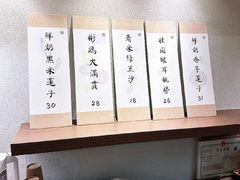 鮮奶黑米蓮子
30
彬鴻大滿貫
28
薏米綠豆沙
18
桂圓銀耳桃膠
26
鮮奶香芋蓮子
31